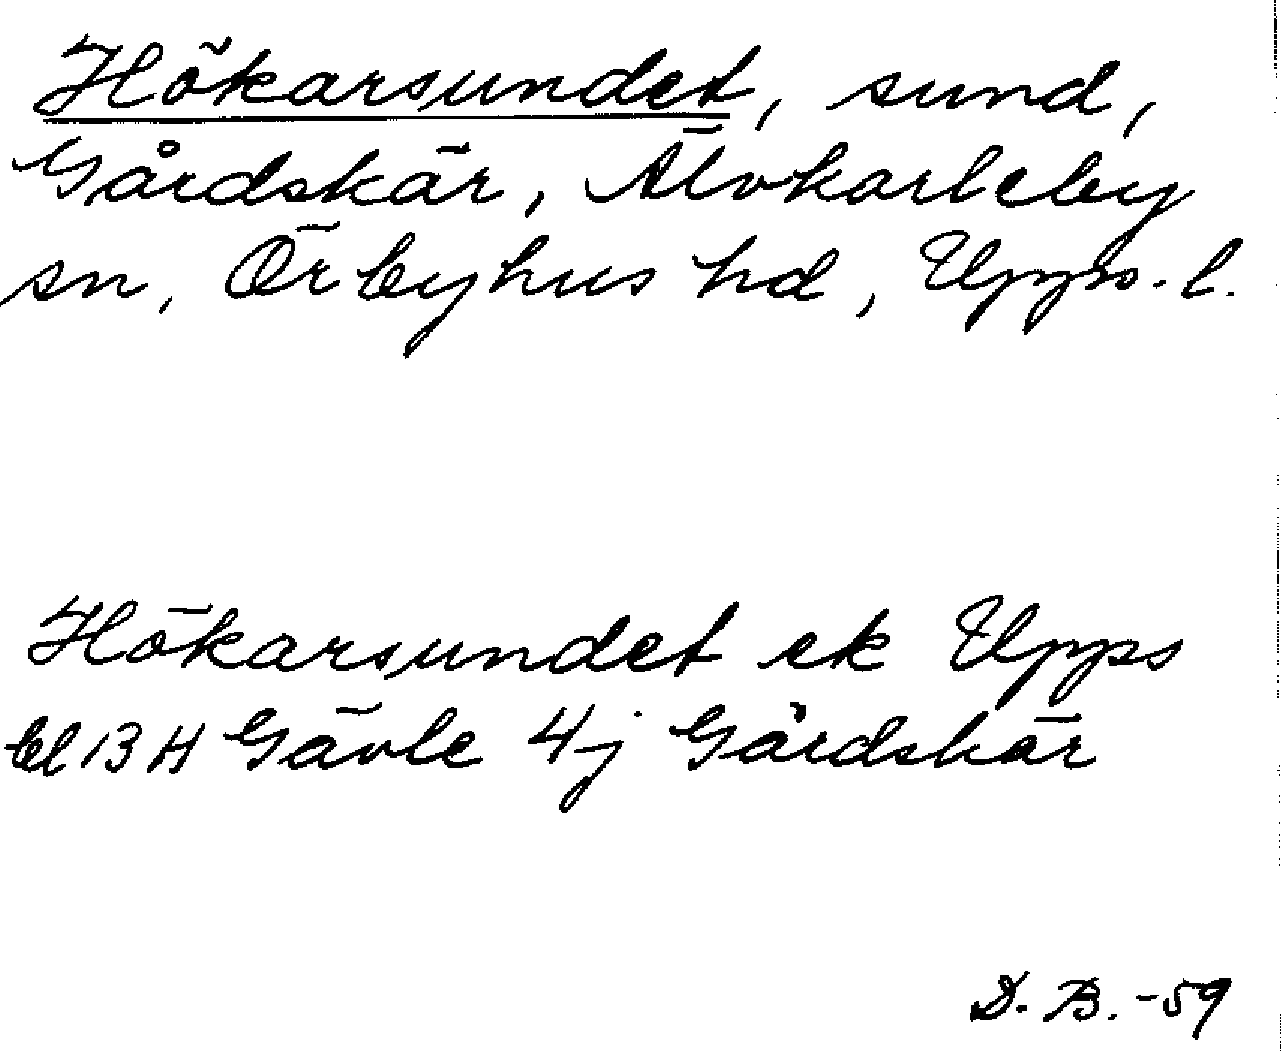 Hökarsundet, sund,
Gårdskär, Älvkarleby
sn, Örbyhus hd, Upps. l.
Hökarsundet ek Upps
bl 13 H Gävle 4 j Gårdskär
D. B. -59